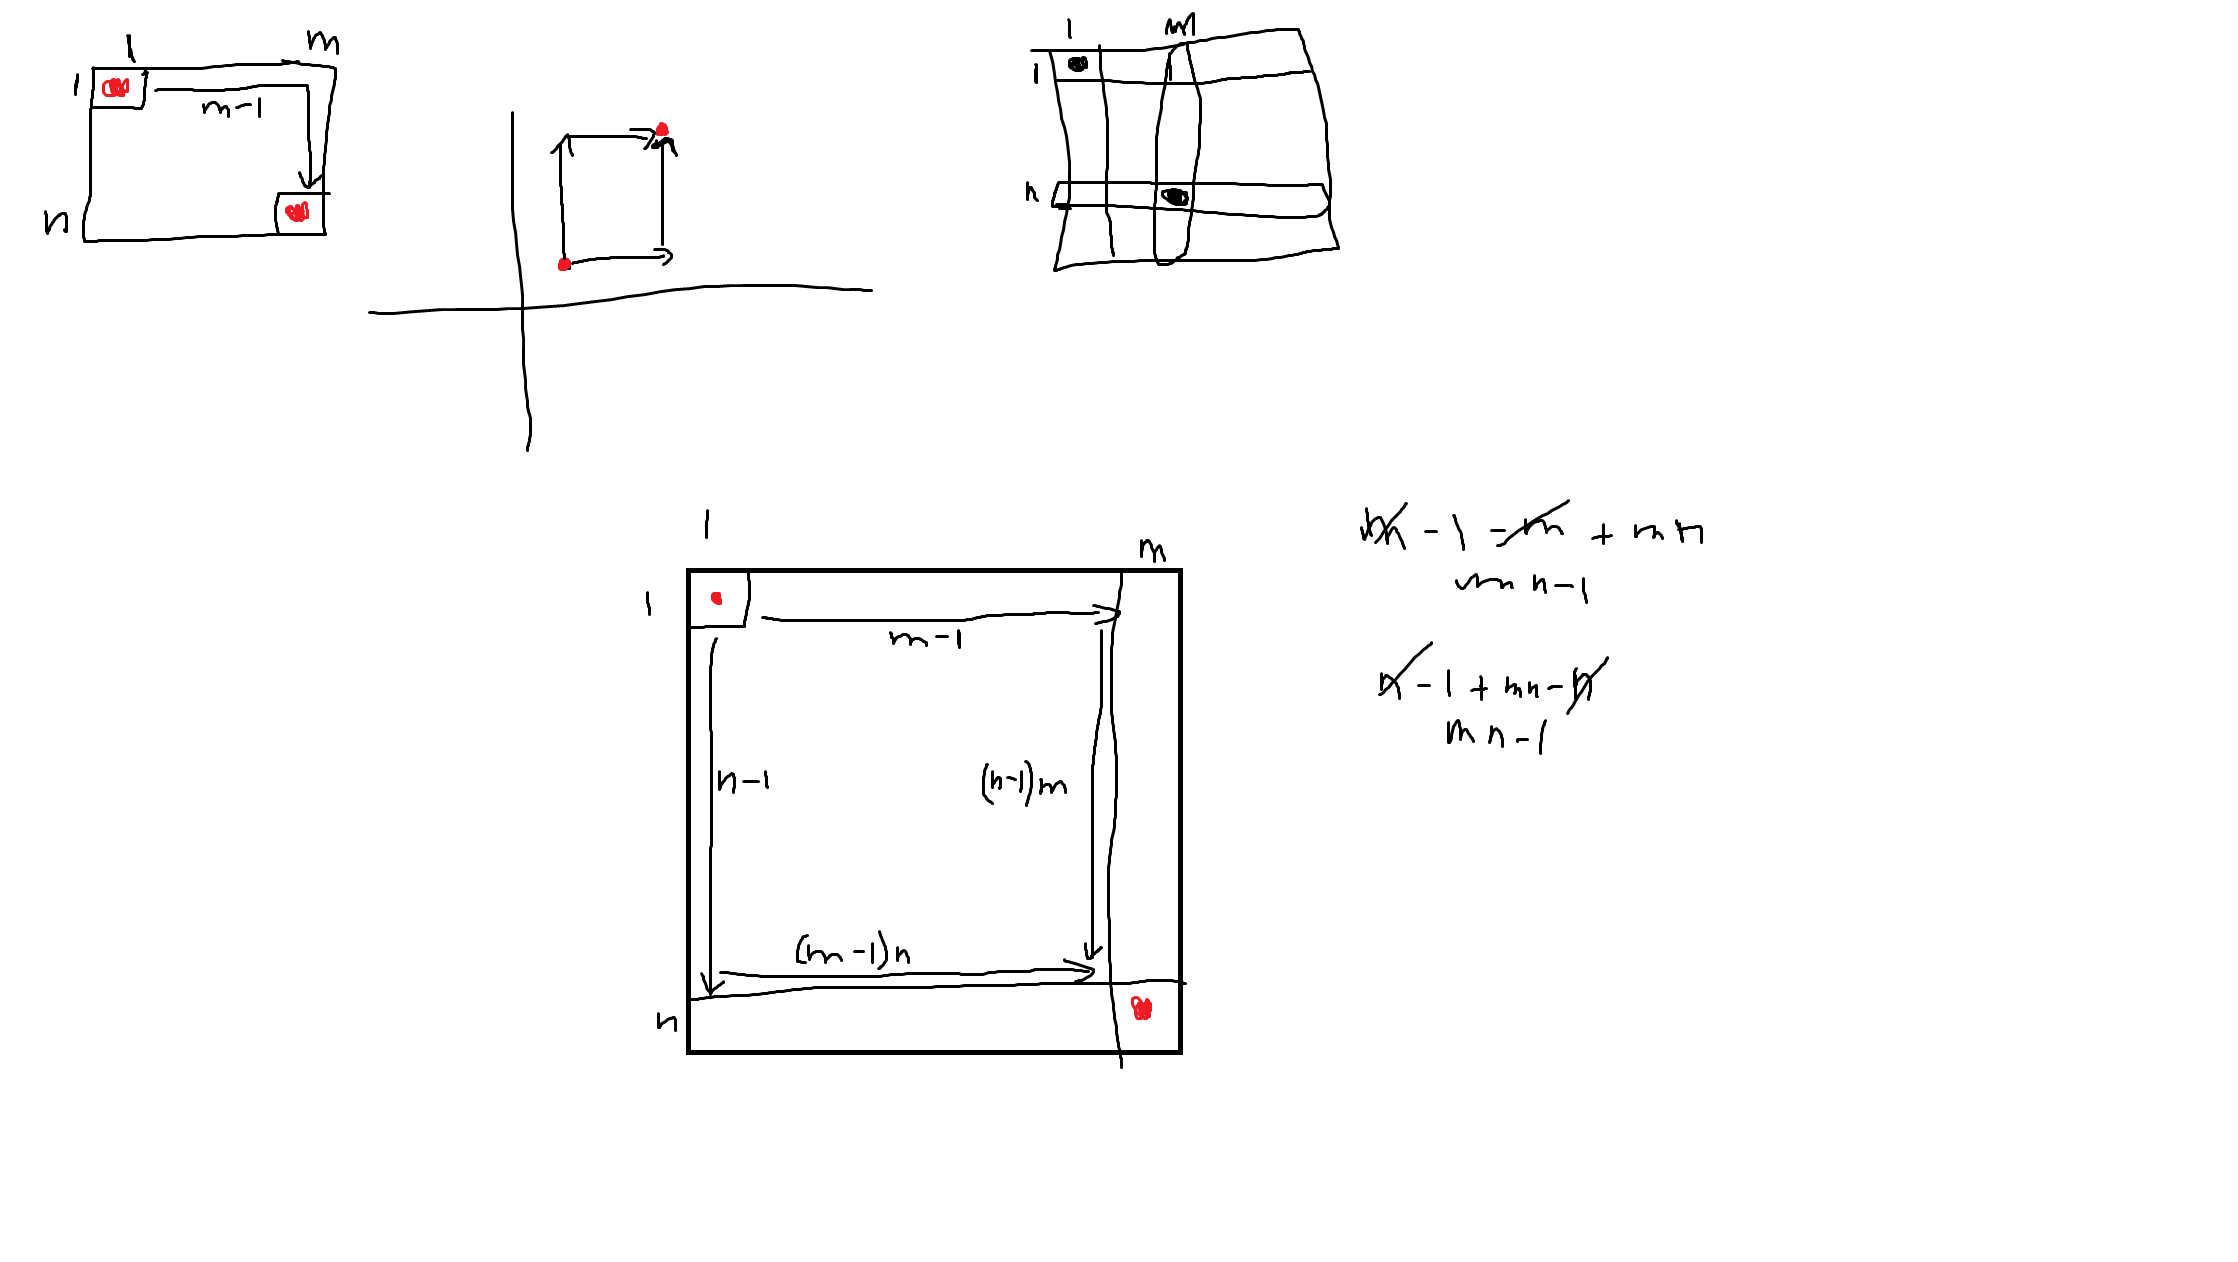 1 m
1
m-1
n
1 m
1
n
1
m
1
m-1
n-1
(n-1)m
(m-1)n
n
m - 1 - m + mn
mn-1
n - 1 + mn - n
mn-1